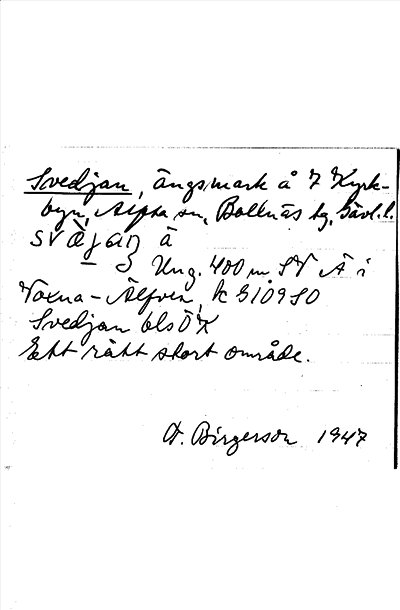 Svedjan, ängsmark å 7 Kyrk-
byn, Alfta sn, Bollnäs tg, Gävl.l.
svæ̀jan å
Ung. 400 m SV Ä i
Voxna-Älfven, k G109SO
Svedjan bls ÖK
Ett rätt stort område.
A. Birgerson 1947